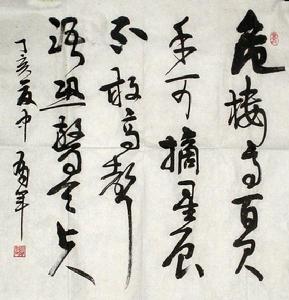 危樓高百尺
手可摘星辰
不敢高聲
語恐驚天上人
丁亥夏中